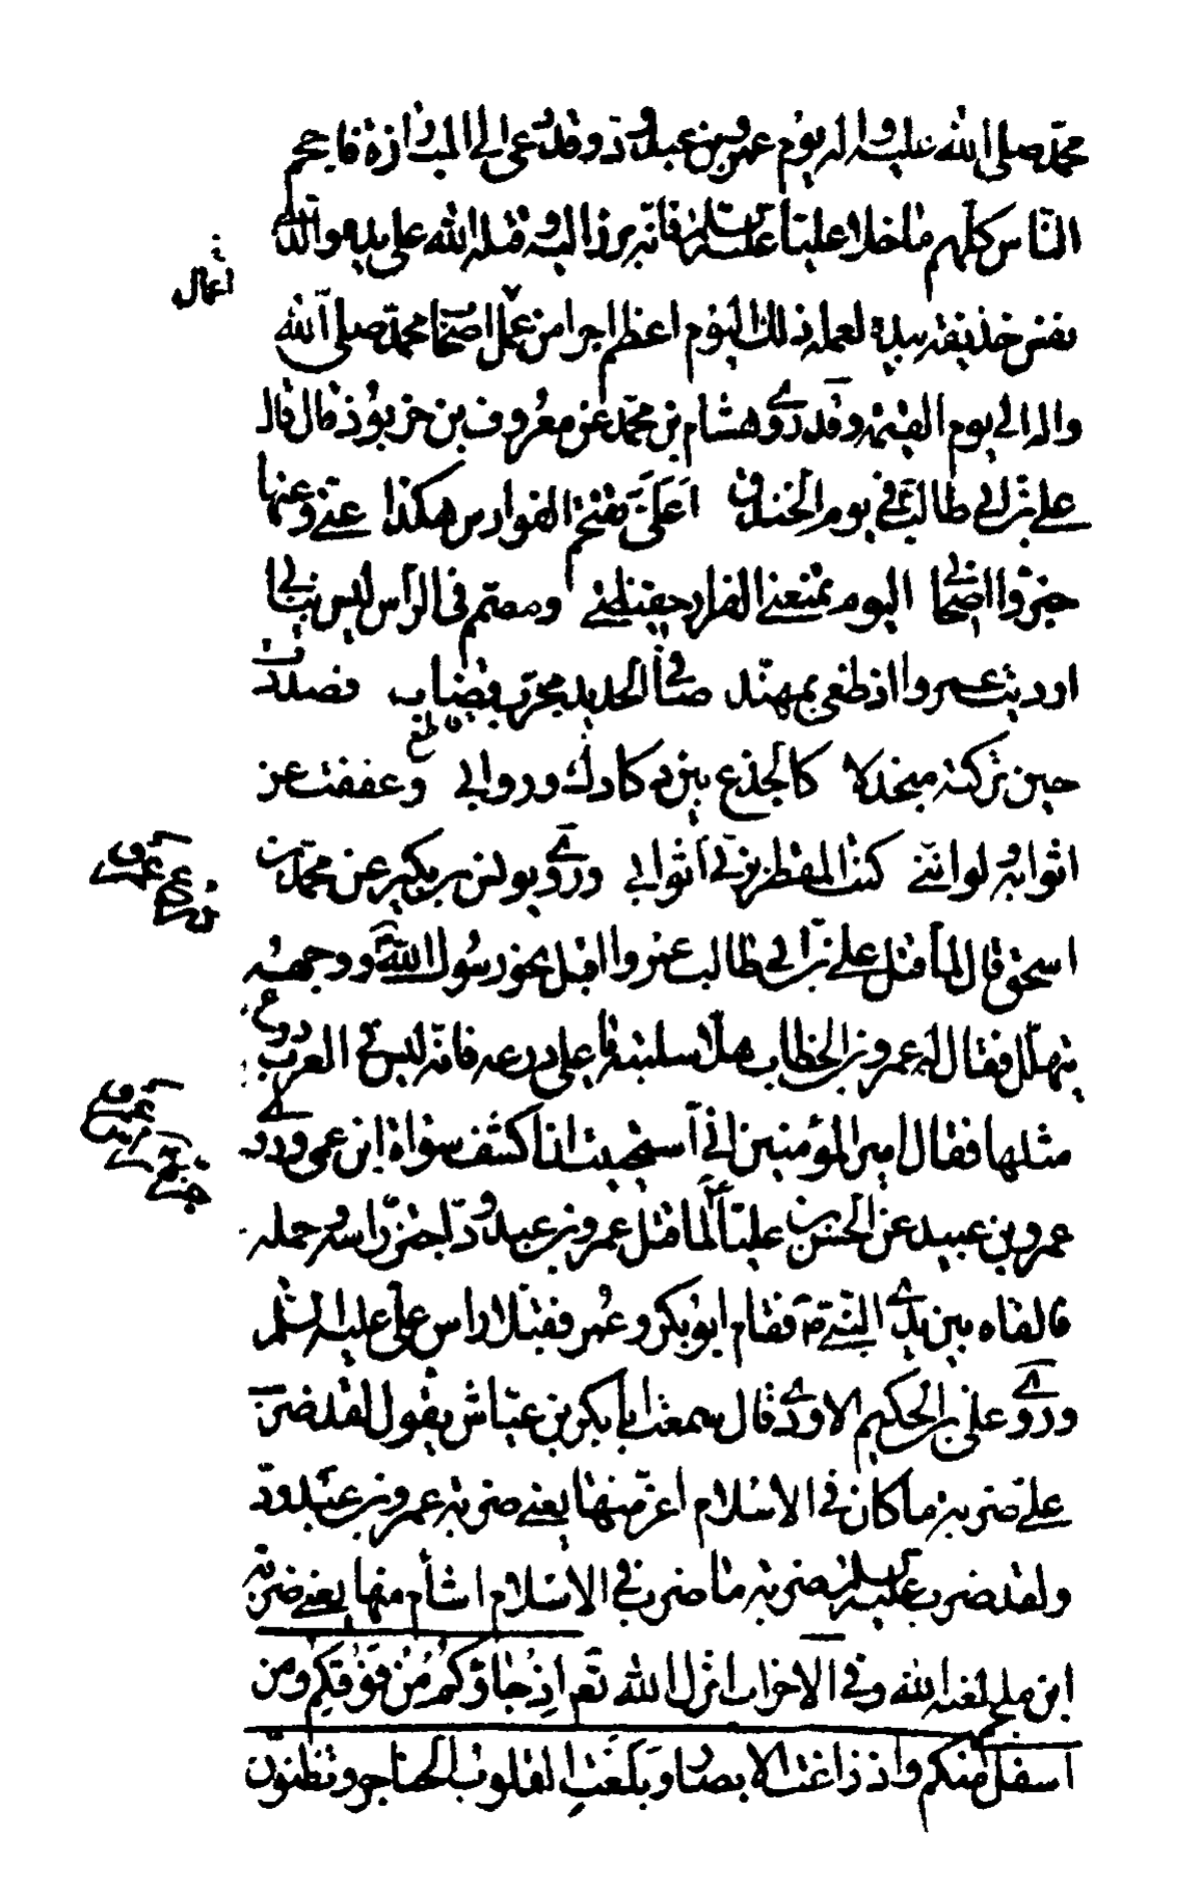 محمد صلى الله عليه واله يوم عمرو بن عبدود وقد دعى الى المبارزة فاحجم
الناس كلهم ما خلا عليا عليه السلم فانه برز اليه وقتله الله على يده والذي
نفس حذيفة بيده لعمله ذلك اليوم اعظم اجرا من عمل اصحاب محمد صلى الله
اعمال
واله الى يوم القيمة وقد روى هشام بن محمد عن معروف بن خربوذ قال قال
علي بن ابي طالب في يوم الخندق اعلي تقتحم الفوارس هكذا عني وعنها
خبروا اصحابي اليوم تمنعني الفرار حفيظتي ومصمم في الراس ليس بنابي
ارديت عمروا اذ طغى بمهند صافي الحديد مجرب قضاب فصددت
حين تركته متجدلا كالجذع بين دكادك وروابي وعففت عن
اثوابه ولو انني كنت المقطر بزني اثوابي وروى يونس بن بكير عن محمد بن
اسحق قال لما قتل علي بن ابي طالب عمروا اقبل نحو رسول الله ووجهه
يتهلل فقال له عمر بن الخطاب هلا سلبته يا علي درعه فانه ليس في العرب درع
مثلها فقال امير المؤمنين اني استحييت ان اكشف سواة ابن عمي وروى
عمرو بن عبيد عن الحسن ان عليا لما قتل عمرو بن عبدود احتز راسه وحمله
فالقاه بين يدي النبي فقام ابو بكر وعمر فقبلا راس علي عليه السلم
وروى علي بن الحكيم الاودي قال سمعت ابا بكر بن عياش يقول لقد ضرب
علي ضربة ما كان في الاسلام اعز منها يعني ضربة عمرو بن عبدود
ولقد ضرب عليه السلم ضربة ما ضرب في الاسلام اشأم منها يعني ضربة
ابن ملجم لعنه الله وفي الاحزاب انزل الله تعم اذ جاؤكم من فوقكم ومن
اسفل منكم واذ زاغت الابصار وبلغت القلوب الحناجر وتظنون